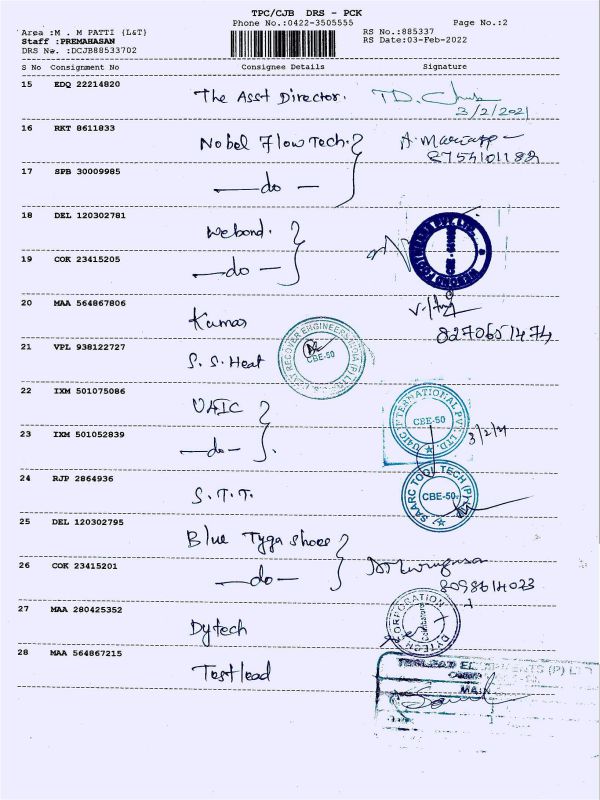 TPC/CJB DRS - PCK
Phone No.:0422-3505555 Page No.:2
Area :M . M PATTI {L&T} RS No.:885337
Staff :PREMAHASAN RS Date:03-Feb-2022
DRS No. :DCJB88533702
S No Consignment No Consignee Details Signature
15 EDQ 22214820
The Asst Director.
3/2/2021
16 RKT 8611833
Nobel Flow Tech.
8754101182
17 SPB 30009985
—do—
18 DEL 120302781
Webond.
19 COK 23415205
—do—
20 MAA 564867806
Kumar
8270651474
21 VPL 938122727
S.S. Heat
CBE-50
22 IXM 501075086
U4IC
U4IC INTERNATIONAL PVT. LTD.
CBE-50
23 IXM 501052839
—do—
3/2/21
24 RJP 2864936
S.T.T.
SAARC TOOL TECH (P)
CBE-50
25 DEL 120302795
Blue Tyga shoes
26 COK 23415201
—do—
8098614023
27 MAA 280425352
Dytech
DYTECH CORPORATION
Coimbatore
28 MAA 564867215
Testlead